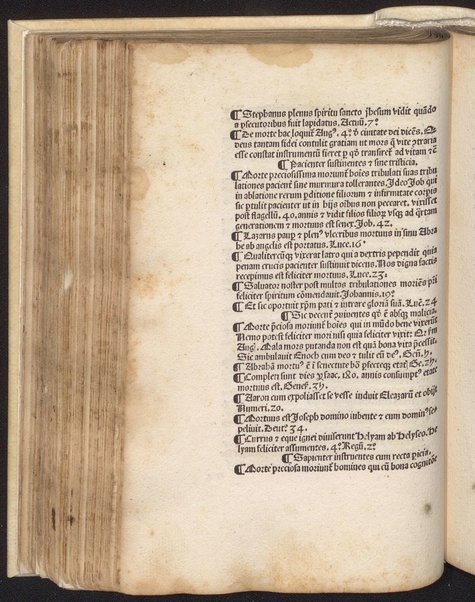 ¶ Stephanus plenus spiritu sancto jhesum vidit quādo
a psecutoribus fuit lapidatus. Actuū. 7º
¶ De morte hac loquit Augꝰ. 4º de ciuitate dei dicēs.
deus tantam fidei contulit gratiam ut mors q̄ vite 9traria
esse constat instrumentū fieret p qd̄ transiret ad vitam ꝛc̄
¶ Pacienter sustinentes ꝛ sine tristicia.
¶ Morte preciosissima moriunt hoīes tribulati suas tribu
lationes pacient sine murmura tollerantes. Ideo Job qui
in ablatione rerum pditione filiorum ꝛ infirmitate corpis
sic ptulit pacienter ut in hijs oībus non peccaret. vixisset
post flagellū. 40. annis ꝛ vidit filios filioꝝ vsqꝫ ad q̄rtam
generationem ꝛ mortuus est senex. Job. 42.
¶ Lazarus paup ꝛ plenꝰ vlceribus mortuus in sinu Abra
be ab angelis est portatus. Luce. 16º
¶ Qualitercūqꝫ vixerat latro qui a dextris pependit quia
penam crucis pacienter sustinuit dicens. Nos digna factis
recepimus est feliciter mortuus. Luce. 23.
¶ Saluator noster post multas tribulationes moriēs pr̄i
feliciter spiritum cōmendauit. Johannis. 19º
¶ Et sic oportuit xp̄m pati ꝛ intrare gloriā suā. Luc̄. 24
¶ Sic decent̄ viuentes qd̄ ē absqꝫ malicia.
¶ Morte p̄ciosa moriunt hoīes qui in mūdo bene vixerūt
Nemo potest feliciter mori nisi quia feliciter vixit:
Aug. Mala mors putanda non est quā bona vita p̄cessit.
Sic ambulauit Enoch cum deo ꝛ tulit eū deꝰ. Geñ. 5.
¶ Abrahā mortuꝰ ē ī senectute bōa Ge. 25.
¶ Completi sunt dies ysaac. annis consumptꝰ etate
mortuus est. Geneẜ. 35.
¶ Aaron cum expoliasset se veste induit Eleazarū et obijt
Numeri. 20.
¶ Mortuus est Joseph domino iubente ꝛ eum dominꝰ se
peliuit. Deut̄. 34.
¶ Currus ꝛ eque ignei diuiserunt Helyam ab Helyseo. He
lyam feliciter assumentes. 4º Regū. 2º
¶ Sapienter instruentes cum recta
¶ Morte preciosa moriunt homines qui cū bona cognitōe